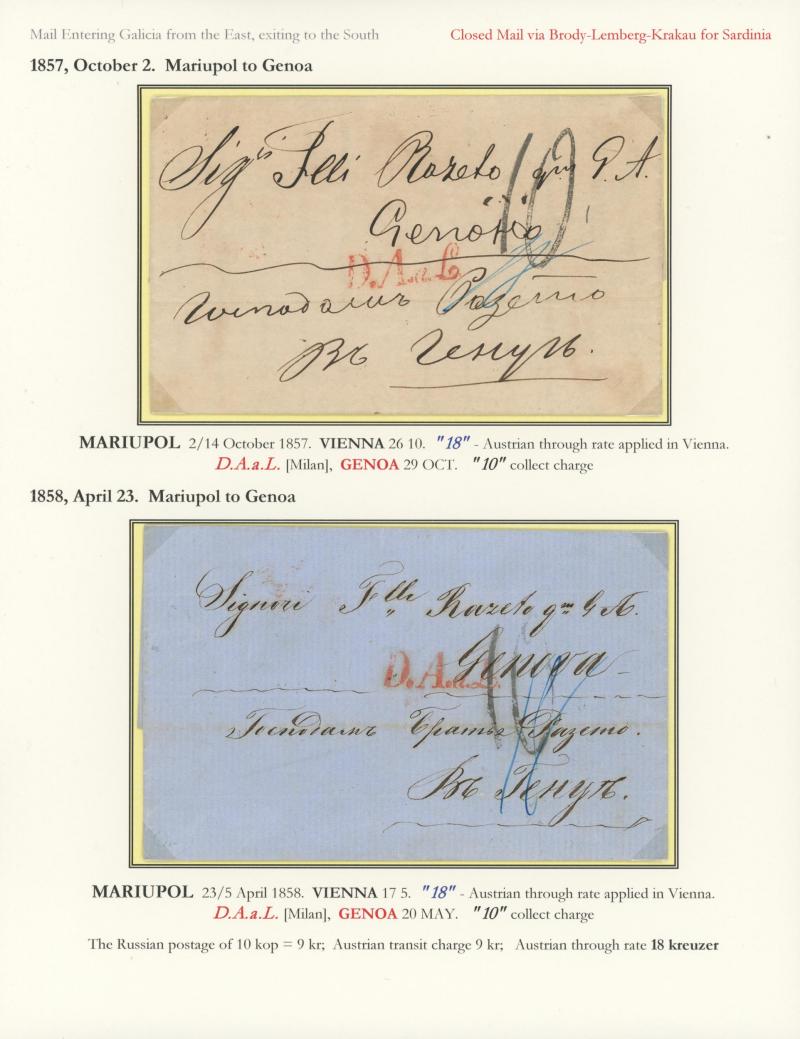 Mail Entering Galicia from the East, exiting to the South
Closed Mail via Brody-Lemberg-Krakau for Sardinia
1857, October 2. Mariupol to Genoa
Sigri Flli Razeto qm G. A.
Genova
10
D.A.a.L.
Господамъ Разетто
Въ Генуѣ.
MARIUPOL 2/14 October 1857. VIENNA 26 10. "18" - Austrian through rate applied in Vienna.
D.A.a.L. [Milan], GENOA 29 OCT. "10" collect charge
1858, April 23. Mariupol to Genoa
Signori Flli Razeto qm G A.
Genova
D.A.a.L.
10
Господамъ Братья Разето.
Въ Генуѣ.
MARIUPOL 23/5 April 1858. VIENNA 17 5. "18" - Austrian through rate applied in Vienna.
D.A.a.L. [Milan], GENOA 20 MAY. "10" collect charge
The Russian postage of 10 kop = 9 kr; Austrian transit charge 9 kr; Austrian through rate 18 kreuzer